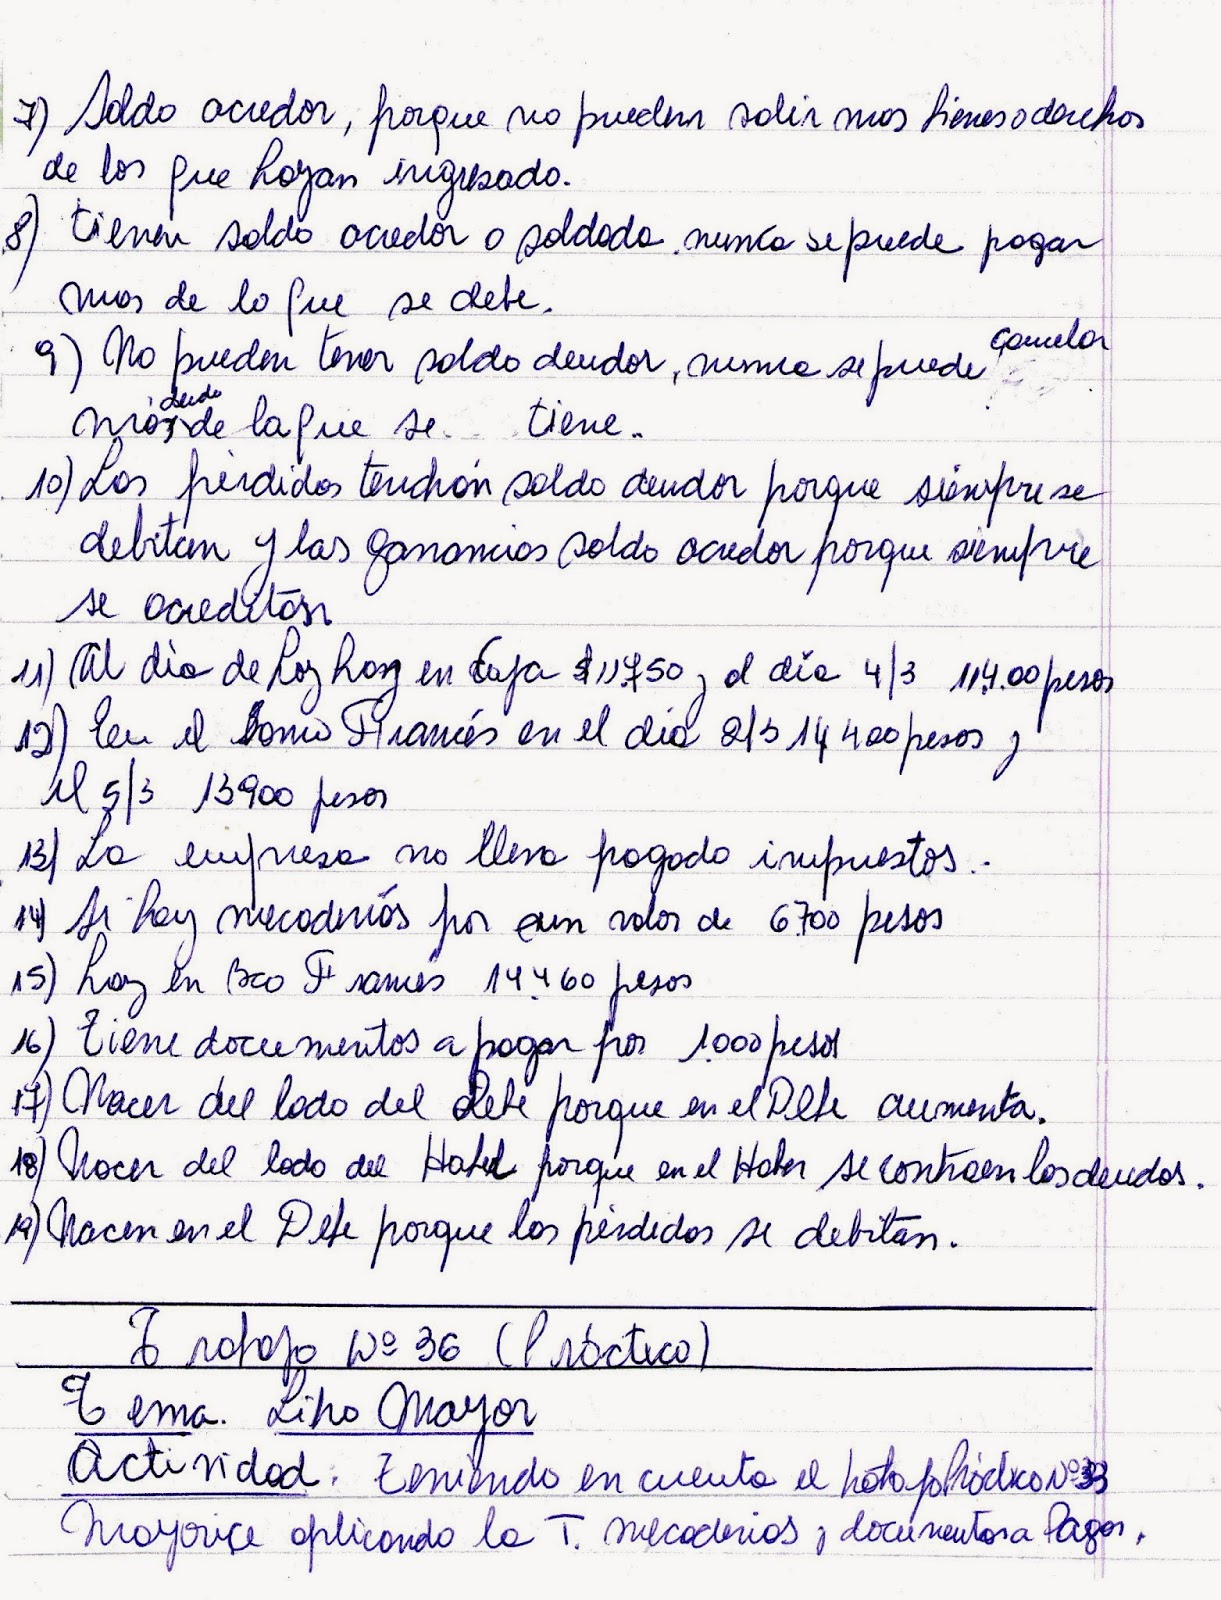 7) Saldo acredor, porque no pueden salir mas bienes o derechos
de los que hayan ingresado.
8) tienen saldo acredor o saldada nunca se puede pagar
mas de lo que se debe.
9) No pueden tener saldo deudor, nunca se puede cancelar
más deuda de la que se tiene.
10) Las pérdidas tendrán saldo deudor porque siempre se
debitan y las ganancias saldo acredor porque siempre
se acreditan
11) Al día de hoy hay en Caja $11.750 y el día 4/3 11.400 pesos
12) En el Banco Francés en el día 2/3 14.400 pesos y
el 5/3 13900 pesos
13) La empresa no lleva pagado impuestos.
14) Si hay mecaderias por un valor de 6.700 pesos
15) hay en Bco Francés 14.460 pesos
16) Tiene documentos a pagar por 1.000 pesos
17) Nacen del lado del debe porque en el Debe aumenta.
18) Nacen del lado del Haber porque en el Haber se contraen las deudas.
19) Nacen en el Debe porque las pérdidas se debitan.
Trabajo Nº 36 (Práctico)
Tema. Libro Mayor
Actividad: Teniendo en cuenta el trabajo Práctico Nº 33
Mayorice aplicando la T. mecaderias y documentos a Pagar.